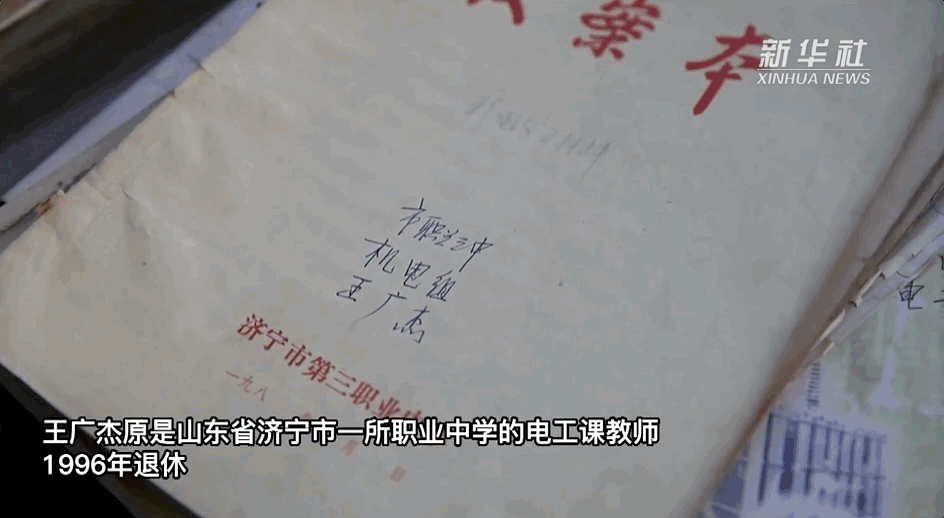 案本
新华社
XINHUA NEWS
市职三中
机电组
王广杰
济宁市第三职业中
一九八
月 日
电工
王广杰原是山东省济宁市一所职业中学的电工课教师
1996年退休